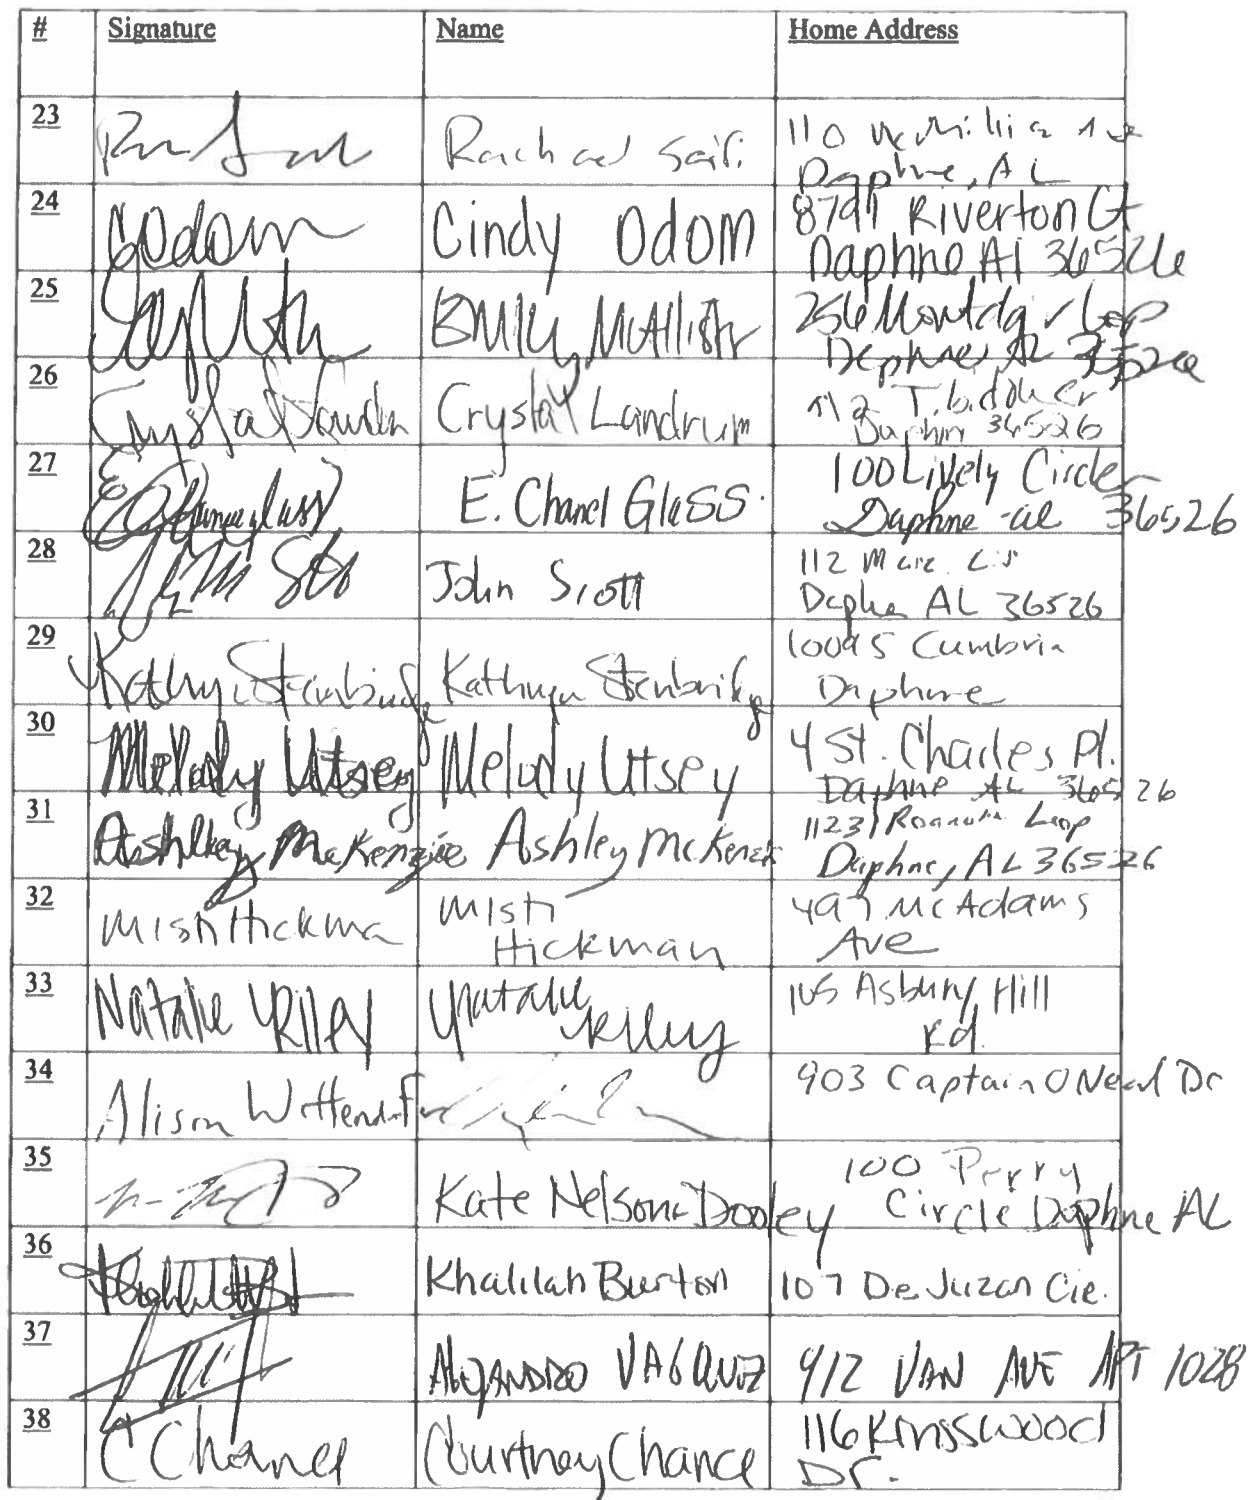 # Signature Name Home Address
23 Rachael Saifi 110
Daphne, AL
24 COdom Cindy Odom 8797 Riverton Ct
Daphne Al 36526
25 Emily McAllister 256 Loop
Daphne, AL 36526
26 Crystal Landrum Crystal Landrum 112
Daphne 36526
27 E Chanel Glass E. Chanel Glass 100 Lively Circle
Daphne al 36526
28 John Scott 112
Daphne AL 36526
29 Kathryn Stenbridge Kathryn Stenbridge 10095 Cumbria
Daphne
30 Melody Utsey Melody Utsey 4 St. Charles Pl.
Daphne AL 36526
31 Ashley McKenzie Ashley McKenzie 11231 Loop
Daphne, AL 36526
32 Misti Hickman Misti 497 McAdams
Hickman Ave
33 Natalie Riley Natalie 105 Asbury Hill
Riley Rd.
34 Alison 903 Captain ONeal Dr
35 Kate Nelson-Dooley 100 Perry
Circle Daphne AL
36 Khalilah Burton 107 DeJuzan Cir.
37 Alejandro 912 Van Ave Apt 1028
38 C Chance Courtney Chance 116 Kingswood
Dr.